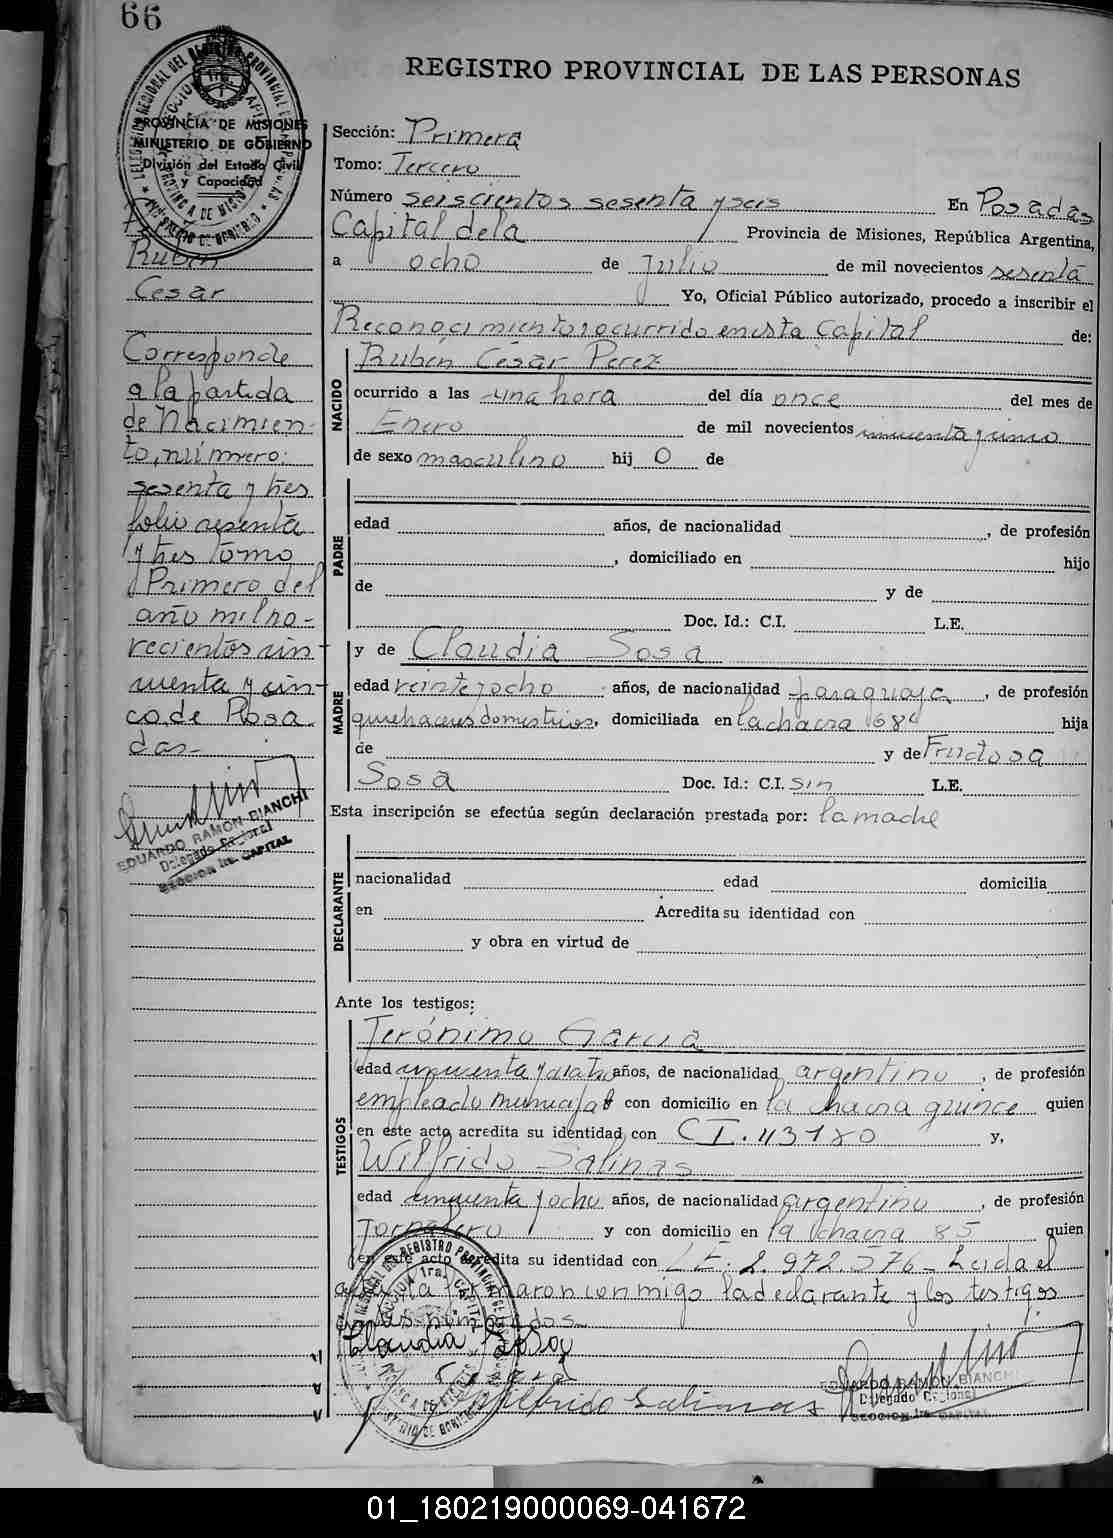 66
REGISTRO PROVINCIAL DE LAS PERSONAS
PROVINCIA DE MISIONES
MINISTERIO DE GOBIERNO
División del Estado Civil
y Capacidad
Ruben
Cesar
Corresponde
a la partida
de Nacimien-
to, número:
sesenta y tres
folio sesenta
y tres tomo
Primero del
año mil no-
vecientos cin-
cuenta y cin-
co, de Posa
das-
EDUARDO RAMON BIANCHI
Delegado Regional
SECCION 1ra. CAPITAL
Sección: Primera
Tomo: Tercero
Número seiscientos sesenta y seis En Posadas
Capital de la Provincia de Misiones, República Argentina,
a ocho de Julio de mil novecientos sesenta
Yo, Oficial Público autorizado, procedo a inscribir el
Reconocimiento, ocurrido en esta Capital de:
NACIDO
Rubén César Perez
ocurrido a las una hora del día once del mes de
Enero de mil novecientos cincuenta y cinco
de sexo masculino hij o de
PADRE
edad años, de nacionalidad , de profesión
, domiciliado en hijo
de y de
Doc. Id.: C.I. L.E.
MADRE
y de Claudia Sosa
edad veinte y ocho años, de nacionalidad paraguaya , de profesión
quehaceres domesticos, domiciliada en la chacra 68 hija
de y de Fructosa
Sosa Doc. Id.: C.I. sin L.E.
Esta inscripción se efectúa según declaración prestada por: la madre
DECLARANTE
nacionalidad edad domicilia
en Acredita su identidad con
y obra en virtud de
Ante los testigos:
TESTIGOS
Jerónimo Garcia
edad cincuenta y cuatro años, de nacionalidad argentino , de profesión
empleado municipal con domicilio en la chacra quince quien
en este acto acredita su identidad con CI. 43180 y,
Wilfrido Salinas
edad cincuenta y ocho años, de nacionalidad argentino , de profesión
Jornalero y con domicilio en la chacra 85 quien
en este acto acredita su identidad con LE. 2.972.576- Leida el
acta, la firmaron conmigo la declarante y los testigos
Claudia Sosa
Wilfrido Salinas
EDUARDO RAMON BIANCHI
Delegado Regional
SECCION 1ra. CAPITAL
01_180219000069-041672